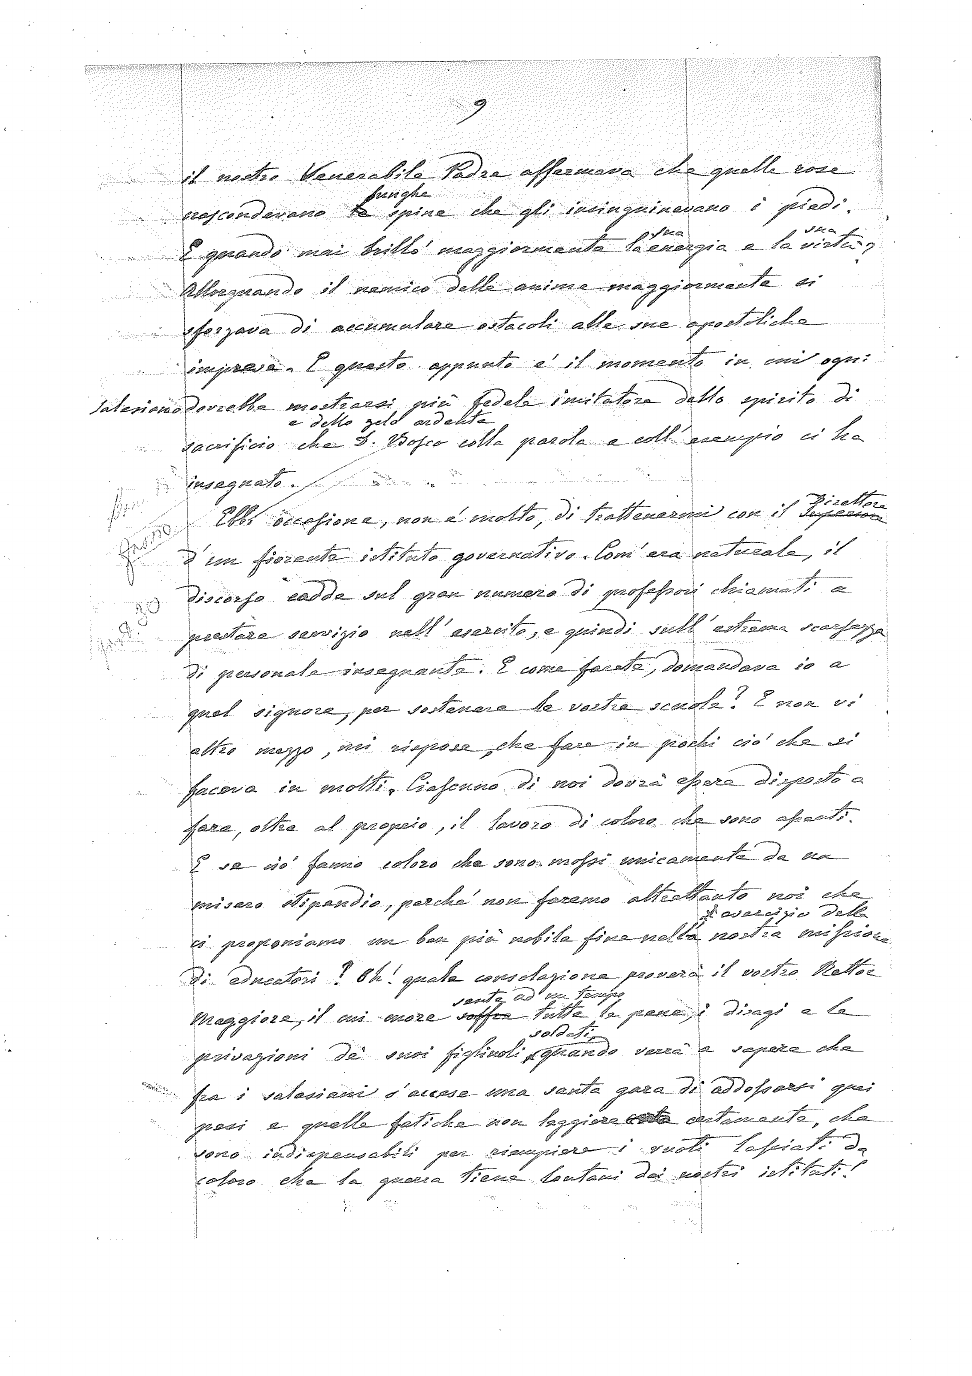 9
il nostro Venerabile Padre affermava che quelle rose
lunghe
nascondevano le spine che gli insinguinavano i piedi.
sua sua
E quando mai brillò maggiormente la energia e la virtù?
Allorquando il nemico delle anime maggiormente si
sforzava di accumulare ostacoli alle sue apostoliche
imprese. E questo appunto è il momento in cui ogni
salesiano dovrebbe mostrarsi più fedele imitatore dello spirito di
e dello zelo ardente
sacrificio che D. Bosco colla parola e coll'esempio ci ha
insegnato.
Direttore
Ebbi occasione, non è molto, di trattenermi con il Superiore
d'un fiorente istituto governativo. Com'era naturale, il
discorso cadde sul gran numero di professori chiamati a
prestare servizio nell'esercito, e quindi sull'estrema scarsezza
di personale insegnante. E come farete, domandava io a
quel signore, per sostenere le vostre scuole? E non vi
altro mezzo, mi rispose, che fare in pochi ciò che si
faceva in molti. Ciascuno di noi dovrà essere disposto a
fare, oltre al proprio, il lavoro di coloro che sono assenti.
E se ciò fanno coloro che sono mossi unicamente da un
misero stipendio, perchè non faremo altrettanto noi che
l'esercizio della
ci proponiamo un ben più nobile fine nella nostra missione
di educatori? Oh! quale consolazione proverà il vostro Rettor
sente ad un tempo
Maggiore, il cui more soffre tutte le pene, i disagi e le
soldati,
privazioni de' suoi figliuoli quando verrà a sapere che
fra i salesiani s'accese una santa gara di addossarsi quei
pesi e quelle fatiche non leggiere certamente, che
sono indispensabili per riempiere i vuoti lasciati da
coloro che la guerra tiene lontani dai nostri istituti!